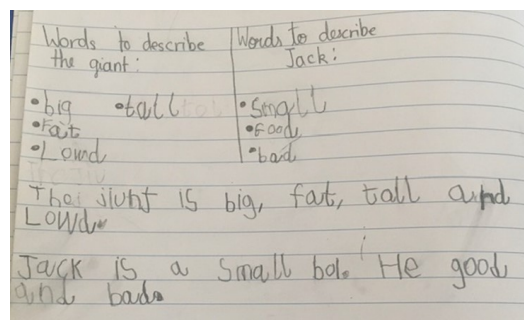 Words to describe the giant:
Words to describe Jack:
•big •tall
•Fat
•Lowd
•Small
•Food
•bad
The jiunt is big, fat, tall and
Lowd.
Jack is a small boi. He good
and bad.